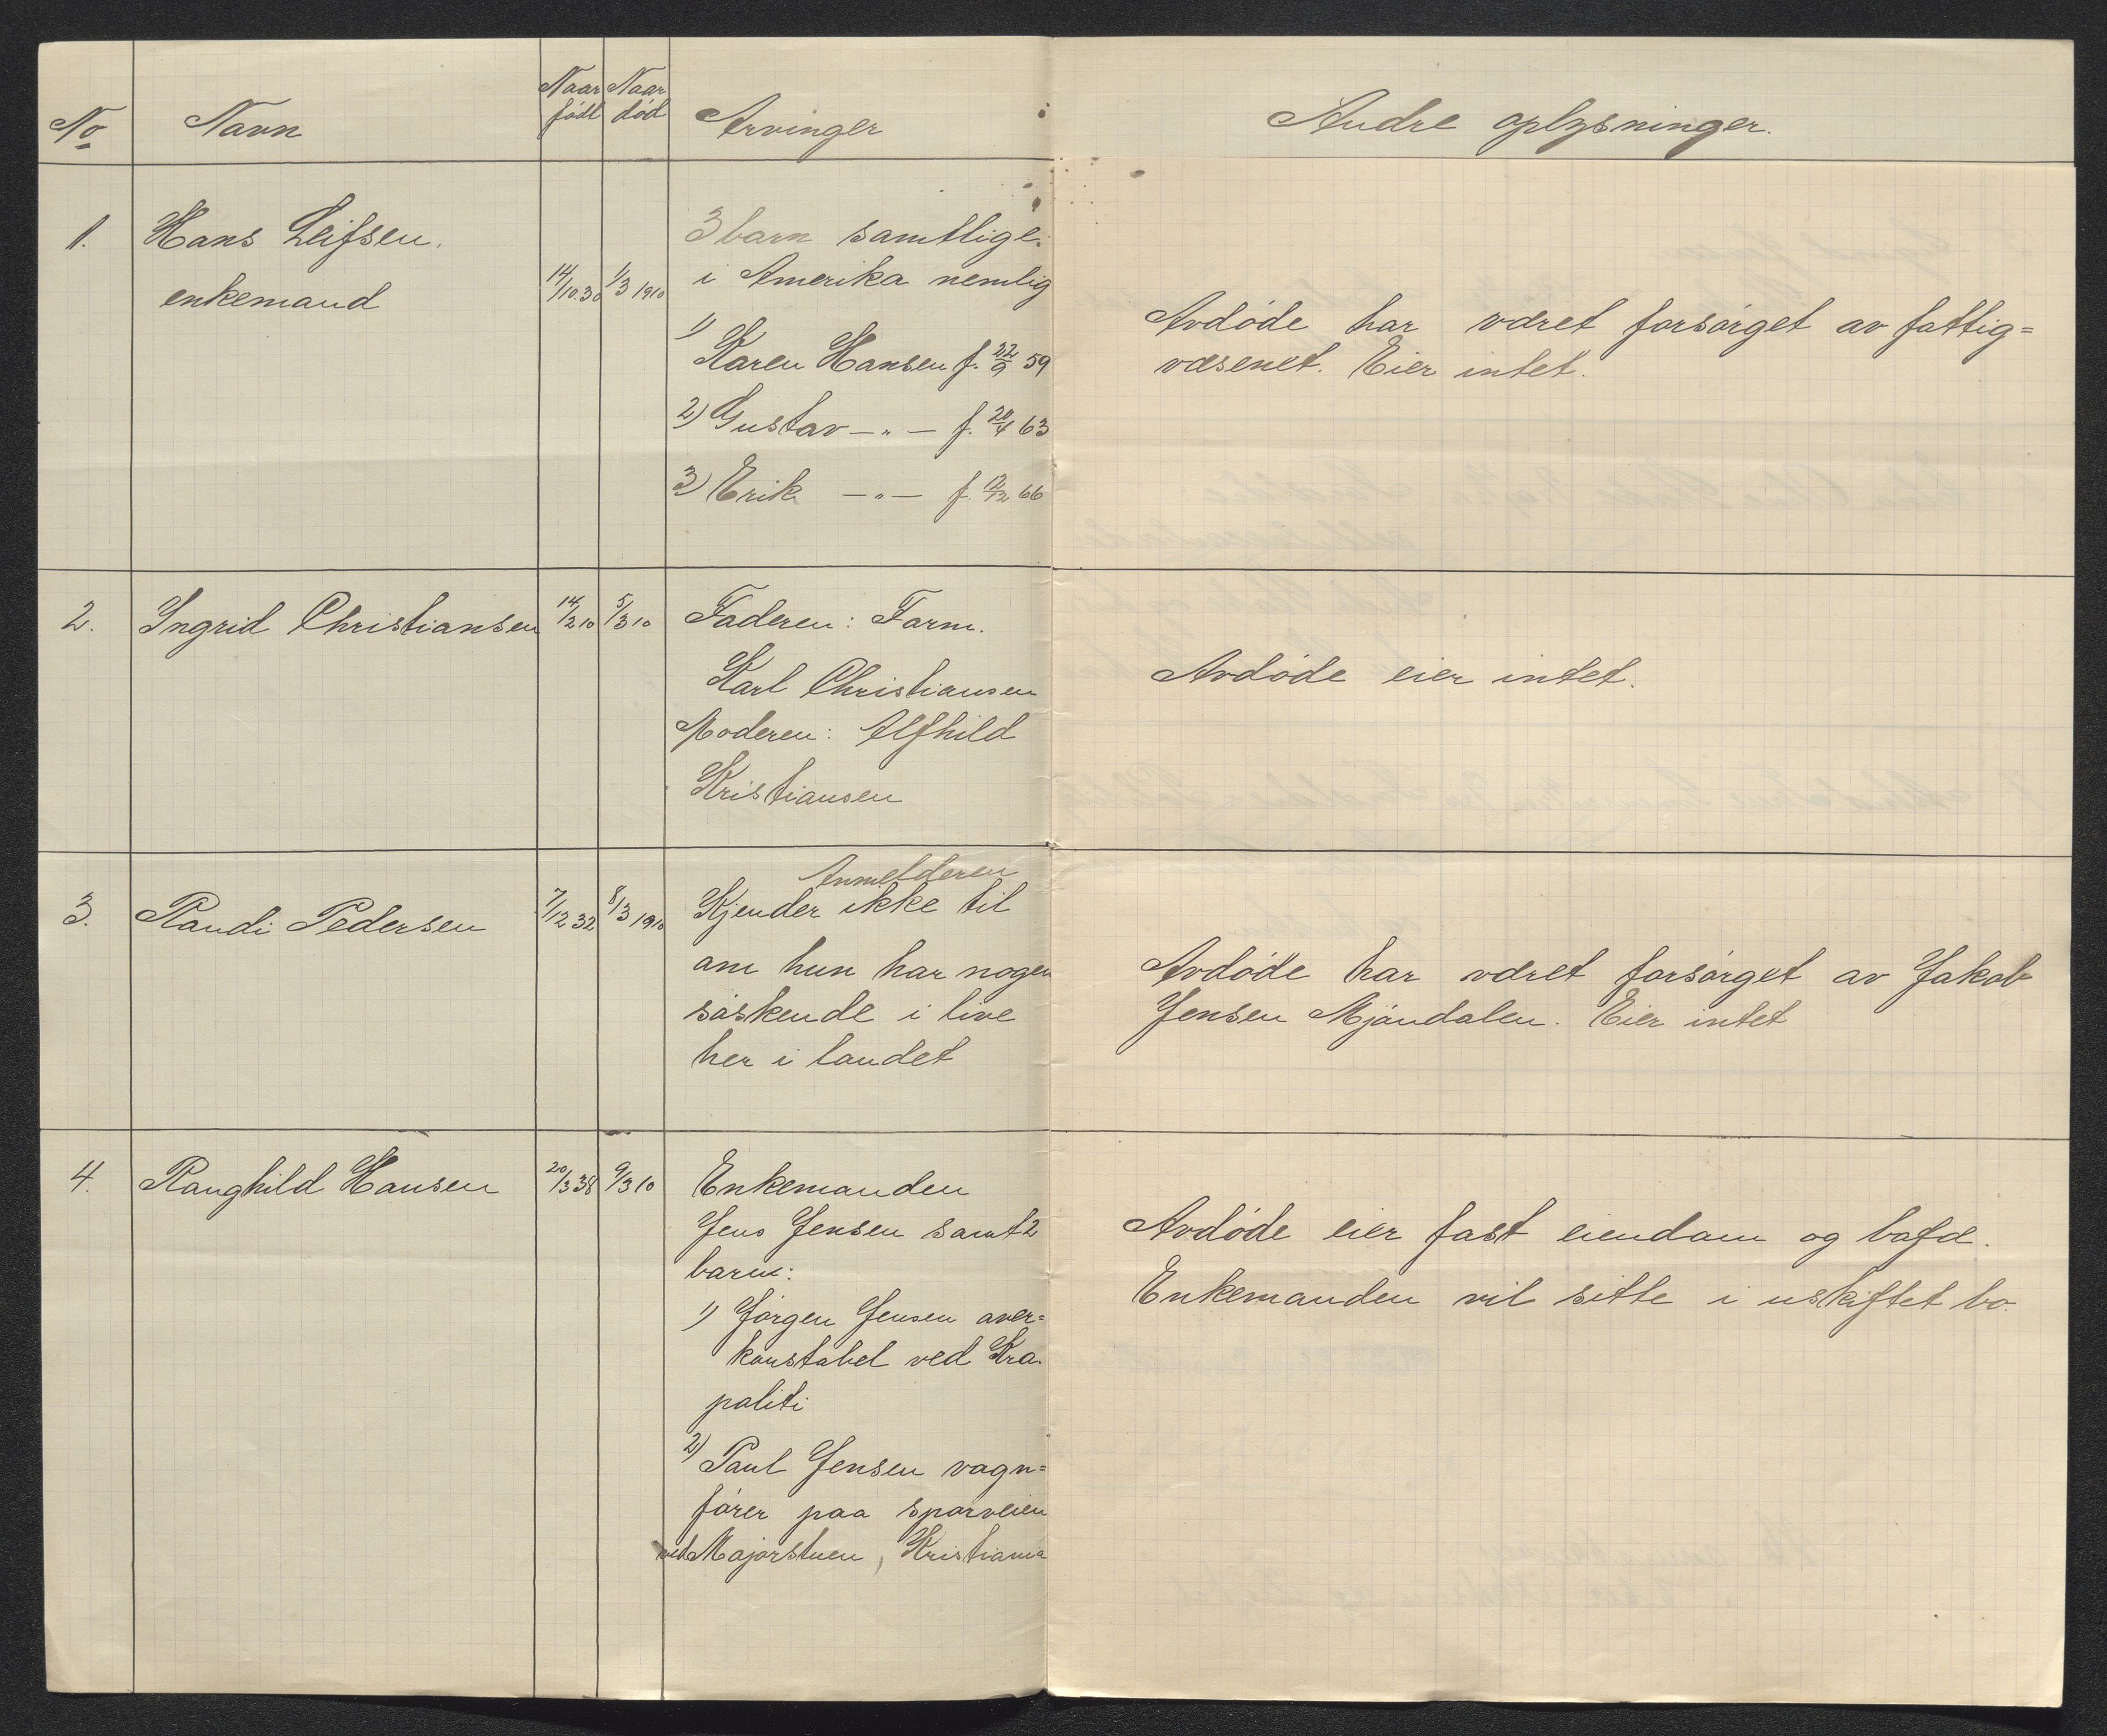 No Navn Naar født Naar død Arvinger Andre oplysninger.
1. Hans Leifsen. 3 barn samtlige
enkemand 14/10 30 1/3 1910 i Amerika nemlig
1) Karen Hansen f. 22/9 59
2) Gustav —„— f. 20/4 63
3) Erik —„— f. 12/12 66
Avdøde har været forsørget av fattig=
væsenet. Eier intet.
2. Ingrid Christiansen 14/2 10 5/3 10 Faderen: Form.
Karl Christiansen
Moderen: Alfhild
Kristiansen
Avdøde eier intet.
3. Randi Pedersen 7/12 32 8/3 1910 Anmelderen
Kjender ikke til
om hun har nogen
søskende i live
her i landet
Avdøde har været forsørget av Jakob
Jensen Mjøndalen. Eier intet
4. Ranghild Hansen 20/3 38 9/3 10 Enkemanden
Jens Jensen samt 2
barn:
1) Jørgen Jensen over=
konstabel ved Kra.
politi
2) Paul Jensen vogn=
fører paa sporveien
ved Majorstuen, Kristiania
Avdøde eier fast eiendom og bofæ.
Enkemanden vil sitte i uskiftet bo.